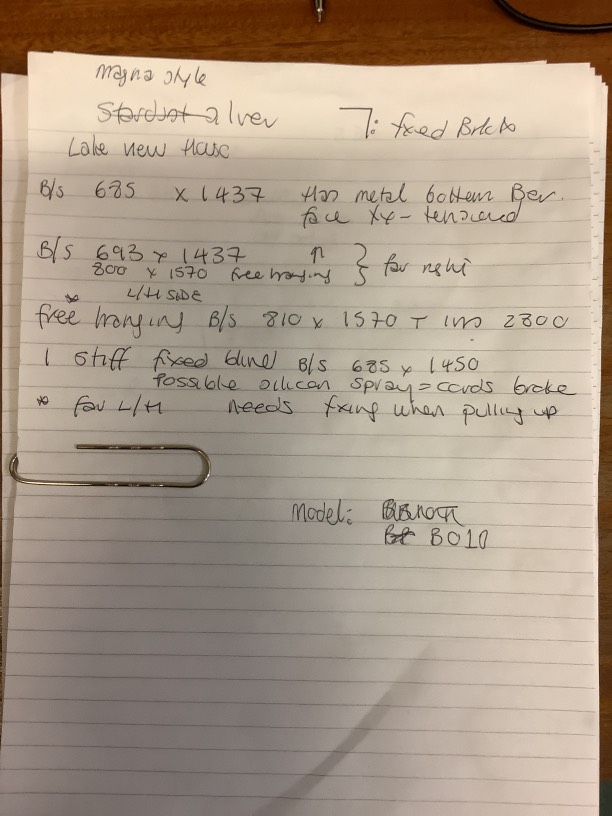 magna style
Stardust
7: fixed
Lake new Haric
B/S 685 x 1437 Has metal bottom Bar.
face
B/S 693 x 1437 "
800 x 1570 free hanging } far
L/H SIDE
* free hanging B/S 810 x 1570 2800
1 stiff fixed blind B/S 685 x 1450
Possible silicon spray = cords broke
* far L/H needs fixing when pulling up
Model:
B010